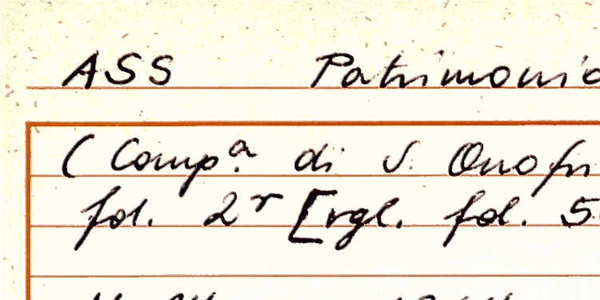 ASS Patrimonio
(Comp.ª di S. Onofri
fol. 2r [vgl. fol. 5